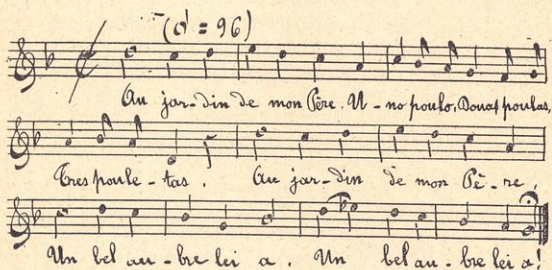 (d = 96)
Au jar-din de mon Père. U-no poulo, Douas poulas,
Tres poule-tas. Au jar-din de mon Pè-re,
Un bel au-bre lei a. Un bel au-bre lei a!